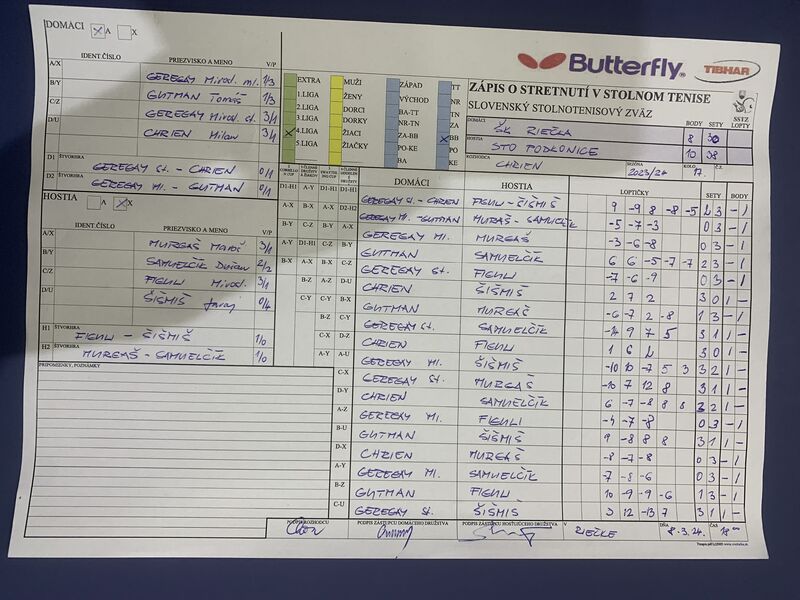 DOMÁCI A X
IDENT.ČÍSLO PRIEZVISKO A MENO V/P
A/X GEREGAY Mirosl. ml. 1/3
B/Y GUTMAN Tomáš 1/3
C/Z GEREGAY Mirosl. st. 3/1
D/U CHRIEN Milan 3/1
D1 ŠTVORHRA GEREGAY St. - CHRIEN 0/1
D2 ŠTVORHRA GEREGAY Ml. - GUTMAN 0/1
HOSTIA A X
IDENT.ČÍSLO PRIEZVISKO A MENO V/P
A/X MURGAŠ 3/1
B/Y SAMUELČÍK Dušan 2/2
C/Z FIGULI Mirosl. 3/1
D/U ŠIŠMIŠ Juraj 0/4
H1 ŠTVORHRA FIGULI - ŠIŠMIŠ 1/0
H2 ŠTVORHRA MURGAŠ - SAMUELČÍK 1/0
PRIPOMIENKY, POZNÁMKY
EXTRA MUŽI ZÁPAD TT
1.LIGA ŽENY VÝCHOD NR
2.LIGA DORCI BA-TT TN
3.LIGA DORKY NR-TN ZA
4.LIGA ŽIACI ZA-BB BB
5.LIGA ŽIAČKY PO-KE PO
BA KE
Butterfly TIBHAR
ZÁPIS O STRETNUTÍ V STOLNOM TENISE
SLOVENSKÝ STOLNOTENISOVÝ ZVÄZ
BODY SETY SSTZ LOPTY
DOMÁCI ŠK RIEČKA 8 30
HOSTIA STO PODKONICE 10 38
ROZHODCA CHRIEN SEZÓNA 2023/24 KOLO 17. Č.Z.
DOMÁCI HOSTIA LOPTIČKY SETY BODY
D1-H1 GEREGAY St. - CHRIEN FIGULI - ŠIŠMIŠ 9 -9 8 -8 -5 2 3 - 1
GEREGAY Ml. - GUTMAN MURGAŠ - SAMUELČÍK -5 -7 -3 0 3 - 1
GEREGAY Ml. MURGAŠ -3 -6 -8 0 3 - 1
GUTMAN SAMUELČÍK 6 6 -5 -7 -7 2 3 - 1
GEREGAY St. FIGULI -7 -6 -9 0 3 - 1
CHRIEN ŠIŠMIŠ 2 7 2 3 0 1 -
GUTMAN MURGAŠ -6 -7 2 -8 1 3 - 1
GEREGAY St. SAMUELČÍK 9 7 5 3 1 1 -
CHRIEN FIGULI 1 6 3 0 1 -
C-X GEREGAY Ml. ŠIŠMIŠ -10 10 -7 5 3 3 2 1 -
D-Y GEREGAY St. MURGAŠ -10 7 12 8 3 1 1 -
CHRIEN SAMUELČÍK 6 -7 -8 8 8 3 2 1 -
A-Z GEREGAY Ml. FIGULI -4 -7 -8 0 3 - 1
B-U GUTMAN ŠIŠMIŠ 9 -8 8 8 3 1 1 -
D-X CHRIEN MURGAŠ -8 -7 -8 0 3 - 1
A-Y GEREGAY Ml. SAMUELČÍK -7 -8 -6 0 3 - 1
B-Z GUTMAN FIGULI 10 -9 -9 -6 1 3 - 1
C-U GEREGAY St. ŠIŠMIŠ 3 12 -13 7 3 1 1 -
PODPIS ROZHODCU PODPIS ZÁSTUPCU DOMÁCEHO DRUŽSTVA PODPIS ZÁSTUPCU HOSŤUJÚCEHO DRUŽSTVA V RIEČKE DŇA 8.3.24. ČAS 18